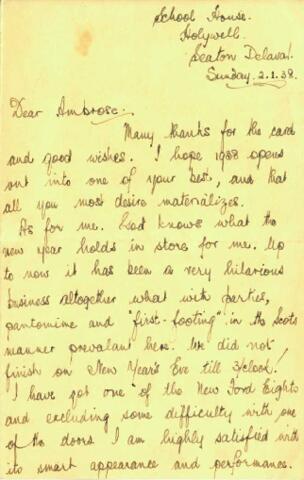 School House.
Holywell.
Seaton Delaval.
Sunday. 2.1.38.
Dear Ambrose:-
Many thanks for the card
and good wishes. I hope 1938 opens
out into one of your best, and that
all you most desire materializes.
As for me. God knows what the
new year holds in store for me. Up
to now it has been a very hilarious
business altogether what with parties,
pantomime and "first-footing" in the Scots
manner prevalant here. We did not
finish on New Year's Eve till 3 o'clock!
I have got one of the New Ford Eights
and excluding some difficulty with one
of the doors I am highly satisfied with
its smart appearance and performance.